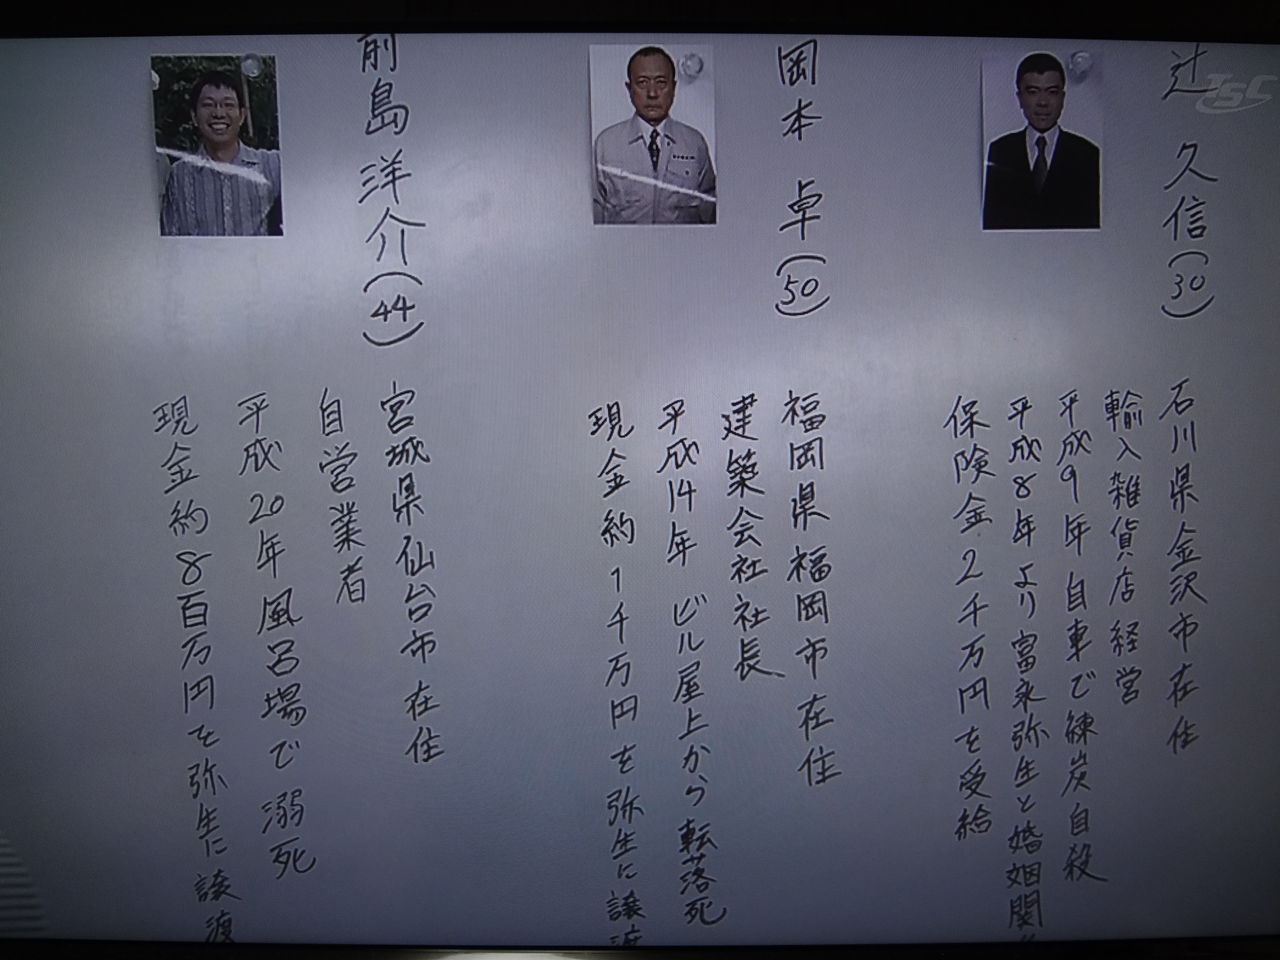 TSC
辻 久信(30)
石川県金沢市在住
輸入雑貨店経営
平成9年 自車で練炭自殺
平成8年より富永弥生と婚姻関
保険金2千万円を受給
岡本 卓(50)
福岡県福岡市在住
建築会社社長
平成14年 ビル屋上から転落死
現金約1千万円を弥生に譲渡
前島洋介(44)
宮城県仙台市在住
自営業者
平成20年風呂場で溺死
現金約8百万円を弥生に譲渡